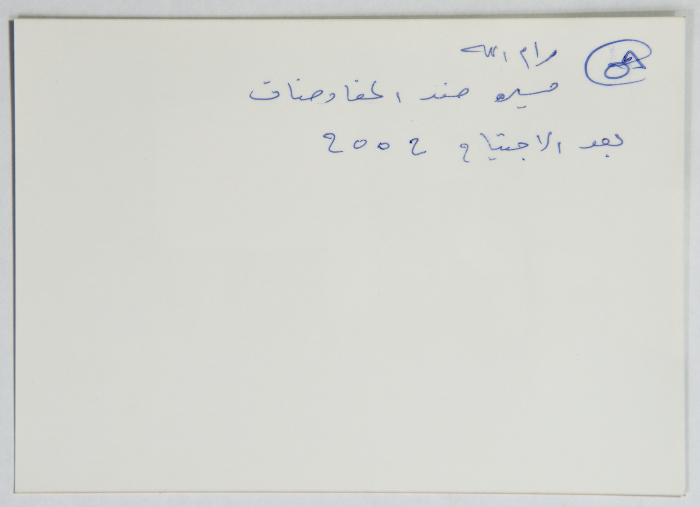 رام الله
مسيره ضد المفاوضات
بعد الاجتياح 2002